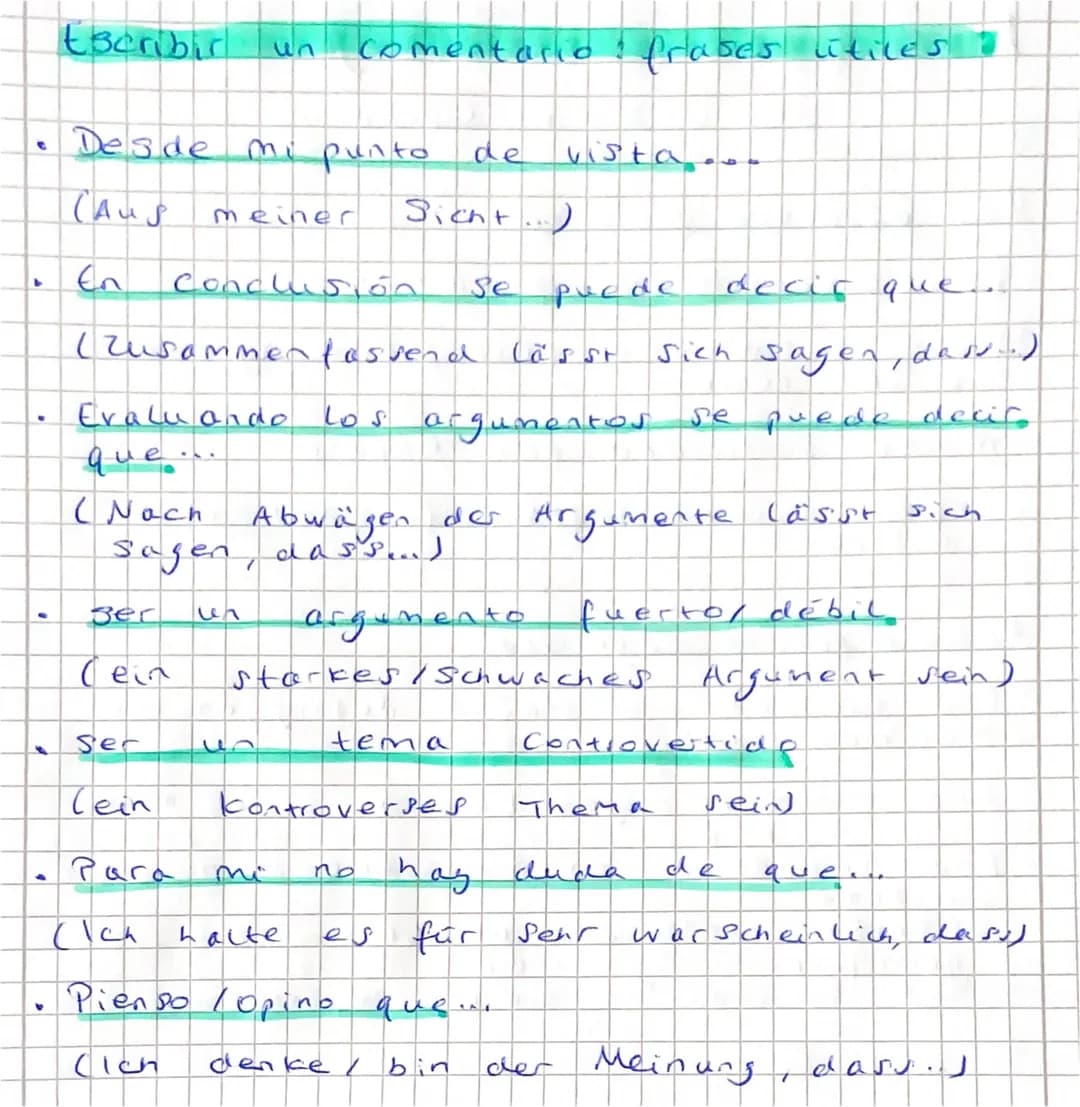 Escribir un comentario: frases útiles:
• Desde mi punto de vista....
(Aus meiner Sicht...)
• En conclusión se puede decir que...
(Zusammenfassend lässt sich sagen, dass...)
• Evaluando los argumentos se puede decir
que...
(Nach Abwägen der Argumente lässt sich
sagen, dass...)
• ser un argumento fuerto/ débil
(ein starkes/schwaches Argument sein)
• ser un tema controvertido
(ein kontroverses Thema sein)
• Para mi no hay duda de que...
(Ich halte es für sehr warscheinlich, dass)
• Pienso /opino que...
(Ich denke / bin der Meinung, dass..)